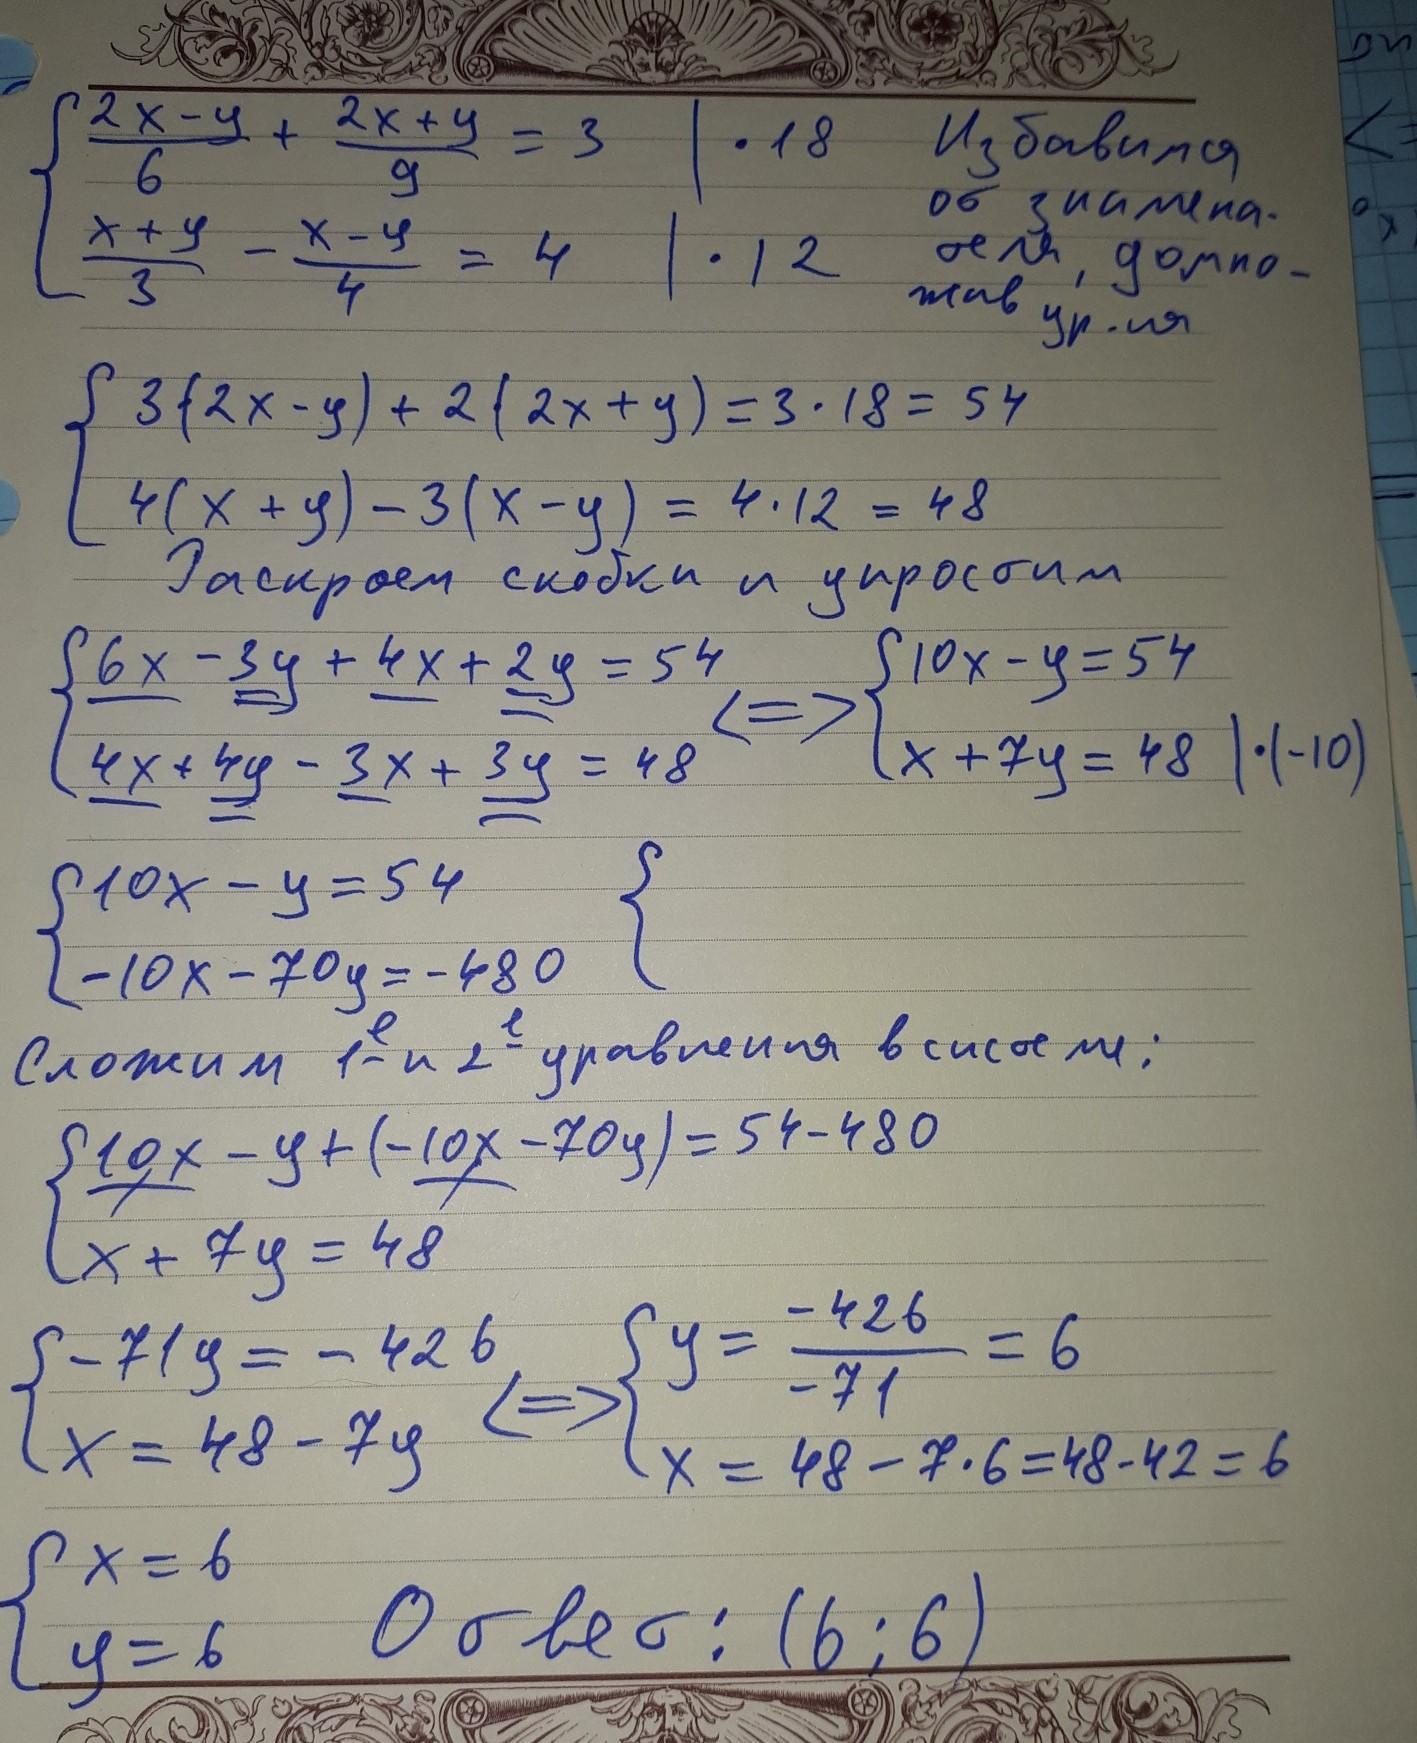 { (2x-y)/6 + (2x+y)/9 = 3 | ·18 Избавимся
от знамена-
(x+y)/3 - (x-y)/4 = 4 | ·12 теля, домно-
жив ур.-ия
{ 3(2x-y)+2(2x+y)=3·18=54
4(x+y)-3(x-y)=4·12=48
Раскроем скобки и упростим
{ 6x-3y+4x+2y=54 <=> { 10x-y=54
4x+4y-3x+3y=48 x+7y=48 |·(-10)
{ 10x-y=54 {
-10x-70y=-480
Сложим 1е и 2е уравнения в системе:
{ 10x-y+(-10x-70y)=54-480
x+7y=48
{ -71y=-426 <=> { y = -426/-71 = 6
x=48-7y x=48-7·6=48-42=6
{ x=6
y=6 Ответ: (6;6)